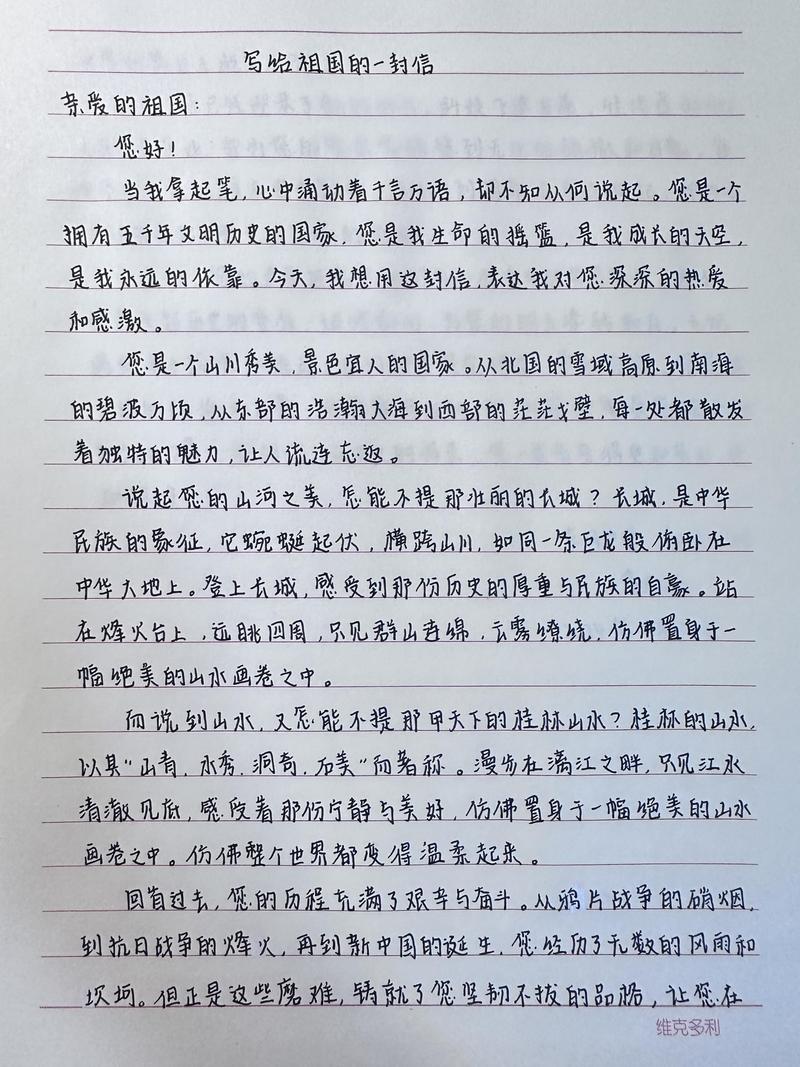 写给祖国的一封信
亲爱的祖国：
您好！
当我拿起笔，心中涌动着千言万语，却不知从何说起。您是一个
拥有五千年文明历史的国家，您是我生命的摇篮，是我成长的天空，
是我永远的依靠。今天，我想用这封信，表达我对您深深的热爱
和感激。
您是一个山川秀美，景色宜人的国家。从北国的雪域高原到南海
的碧波万顷，从东部的浩瀚大海到西部的茫茫戈壁，每一处都散发
着独特的魅力，让人流连忘返。
说起您的山河之美，怎能不提那壮丽的长城？长城，是中华
民族的象征，它蜿蜒起伏，横跨山川，如同一条巨龙般俯卧在
中华大地上。登上长城，感受到那份历史的厚重与民族的自豪。站
在烽火台上，远眺四周，只见群山连绵，云雾缭绕，仿佛置身于一
幅绝美的山水画卷之中。
而说到山水，又怎能不提那甲天下的桂林山水？桂林的山水，
以其“山青，水秀，洞奇，石美”而著称。漫步在漓江之畔，只见江水
清澈见底，感受着那份宁静与美好，仿佛置身于一幅绝美的山水
画卷之中。仿佛整个世界都变得温柔起来。
回首过去，您的历程充满了艰辛与奋斗。从鸦片战争的硝烟，
到抗日战争的烽火，再到新中国的诞生，您经历了无数的风雨和
坎坷。但正是这些磨难，铸就了您坚韧不拔的品格，让您在
维克多利